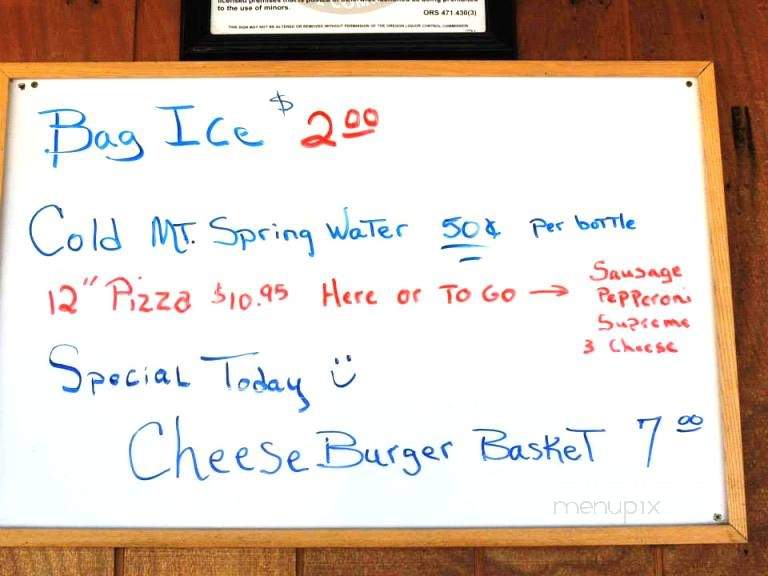 to the use of minors.
ORS 471.430(3)
THIS SIGN MAY NOT BE ALTERED OR REMOVED WITHOUT PERMISSION OF THE OREGON LIQUOR CONTROL COMMISSION
Bag Ice $2.00
Cold MT. Spring Water 50¢ Per bottle
12" Pizza $10.95 Here or To Go →
Sausage
Pepperoni
Supreme
3 Cheese
Special Today :)
Cheese Burger Basket 7.00
menupix